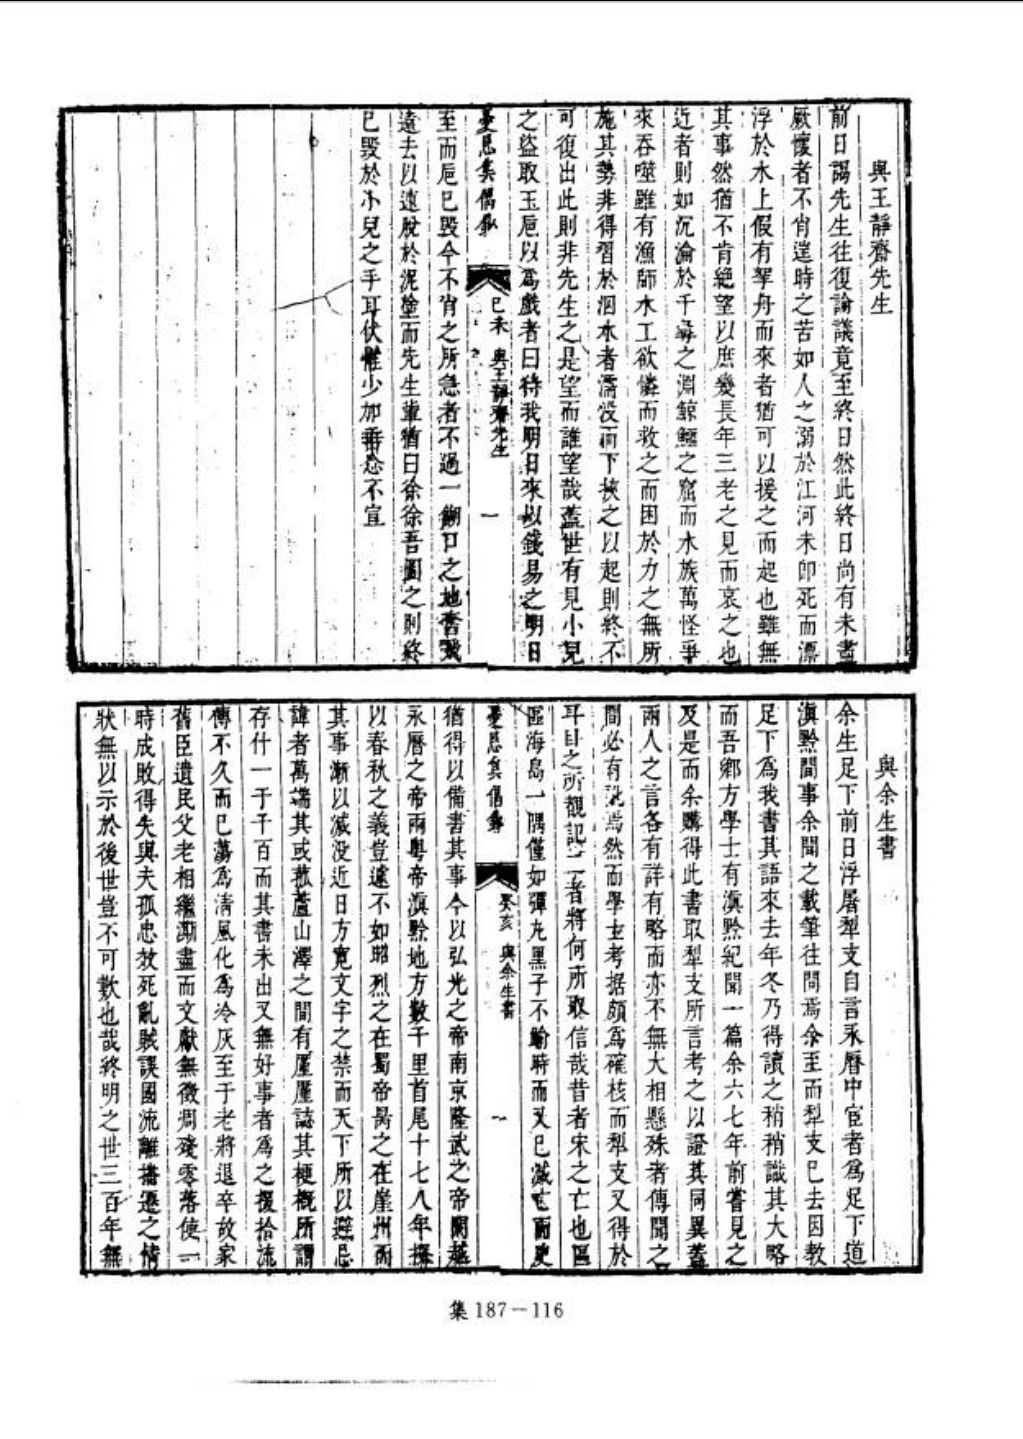 與王靜齋先生
前日謁先生往復論議竟至終日然此終日尚有未盡
厥懷者不肖遑時之苦如人之溺於江河未卽死而漂
浮於木上假有拏舟而來者猶可以援之而起也雖無
其事然猶不肯絶望以庶幾長年三老之見而哀之也
近者則如沉淪於千尋之淵鯨鱷之窟而水族萬怪爭
來吞噬雖有漁師水工欲憐而救之而困於力之無所
施其勢非得習於泅水者濡没而下挾之以起則終不
可復出此則非先生之是望而誰望哉蓋世有見小兒
之盜取玉巵以爲戲者曰待我明日來以錢易之明日
憂患集偶鈔 己未 與王靜齋先生 一
至而巵已毀今不肖之所急者不過一餬口之地耆
遠去以遠脫於泥塗而先生輩猶曰徐徐吾圖之則終
已毀於小兒之手耳伏惟少加垂念不宣
與余生書
余生足下前日浮屠犁支自言永曆中宦者爲足下道
滇黔間事余聞之載筆往問焉余至而犁支已去因教
足下爲我書其語來去年冬乃得讀之稍稍識其大略
而吾鄉方學士有滇黔紀聞一篇余六七年前嘗見之
及是而余購得此書取犁支所言考之以證其同異蓋
兩人之言各有詳有略而亦不無大相懸殊者傳聞之
間必有訛焉然而學士考据頗爲確核而犁支又得於
耳目之所覩記二者將何所取信哉昔者宋之亡也區
區海島一隅僅如彈丸黑子不踰時而又已滅亡而史
憂患集偶鈔 癸亥 與余生書 一
猶得以備書其事今以弘光之帝南京隆武之帝閩越
永曆之帝兩粤帝滇黔地方數千里首尾十七八年揆
以春秋之義豈遽不如昭烈之在蜀帝昺之在崖州而
其事漸以滅没近日方寬文字之禁而天下所以避忌
諱者萬端其或菰蘆山澤之間有厪厪誌其梗槪所謂
存什一于千百而其書未出又無好事者爲之掇拾流
傳不久而已蕩爲清風化爲冷灰至于老將退卒故家
舊臣遺民父老相繼漸盡而文獻無徵凋殘零落使一
時成敗得失與夫孤忠效死亂賊誤國流離播遷之情
狀無以示於後世豈不可歎也哉終明之世三百年無
集 187－116